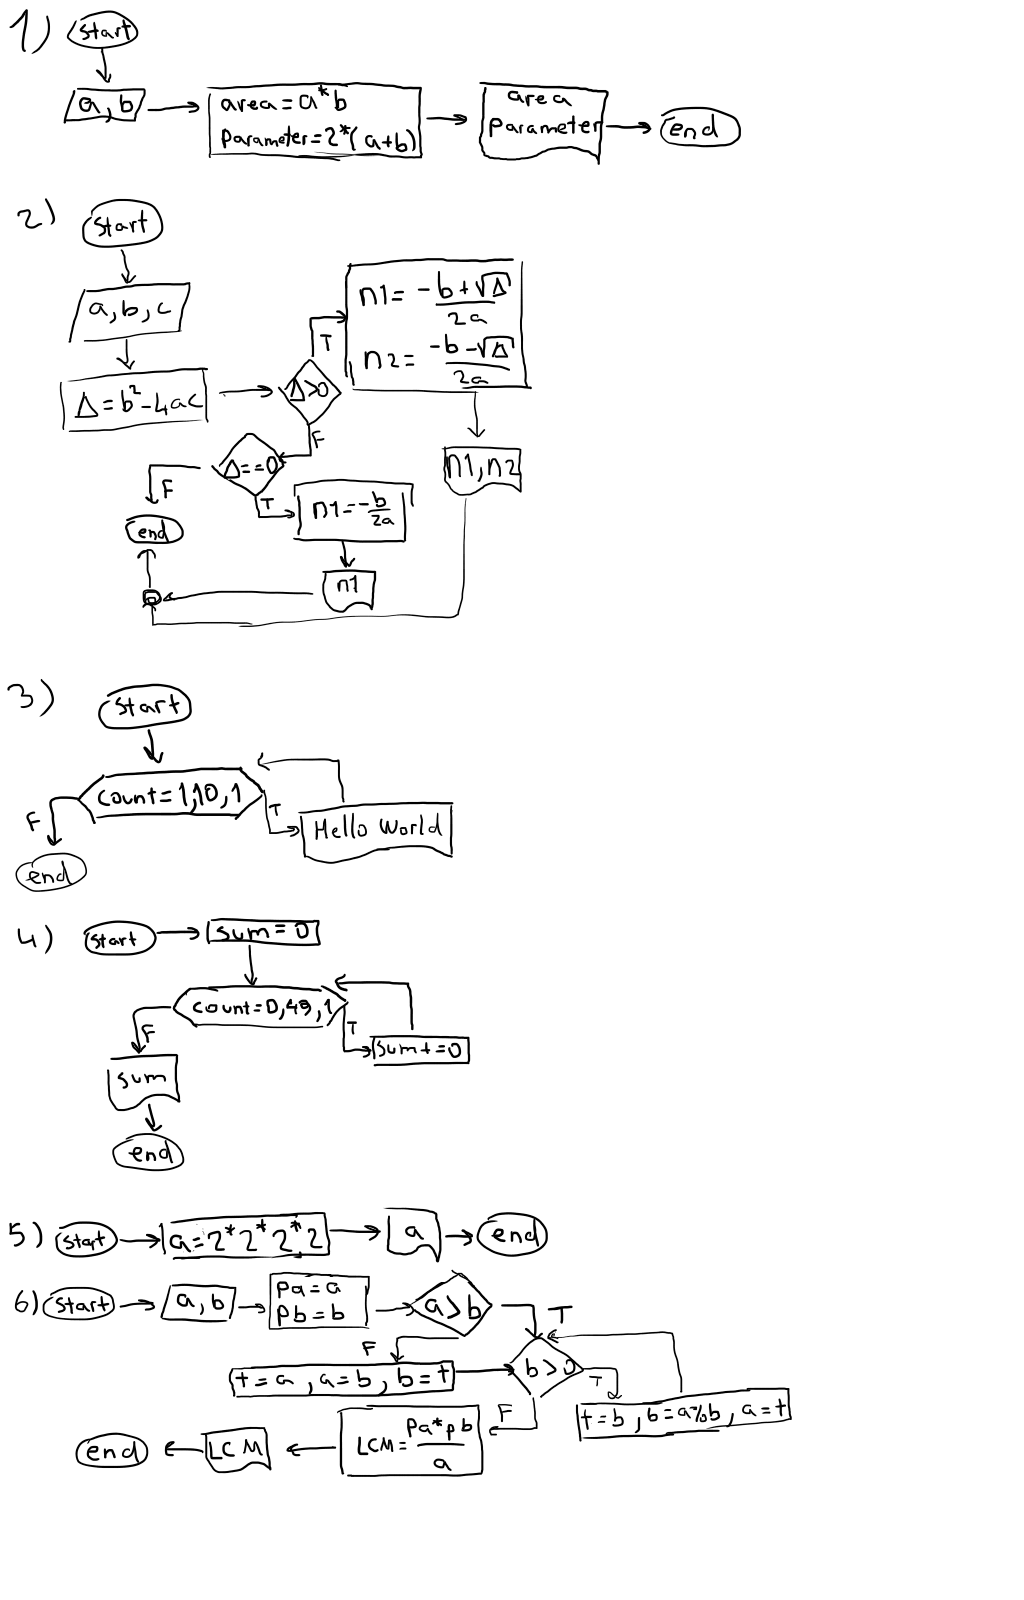 1)
start
a, b
area = a * b
Parameter = 2*(a+b)
area
Parameter
end
2)
start
a, b, c
Δ = b² - 4ac
Δ>0
T
n1 = -b + √Δ / 2a
n2 = -b - √Δ / 2a
F
n1, n2
Δ==0
F
T
n1 = -b/2a
end
n1
3)
start
count = 1,10,1
T
F
Hello World
end
4)
start
sum = 0
count = 0,49,1
F
T
sum + = 0
sum
end
5)
start
a = 2*2*2*2
a
end
6)
start
a, b
Pa = a
Pb = b
a > b
T
F
t = a , a = b , b = t
b > 0
T
t = b , b = a%b , a = t
F
LCM = Pa * pb / a
LCM
end